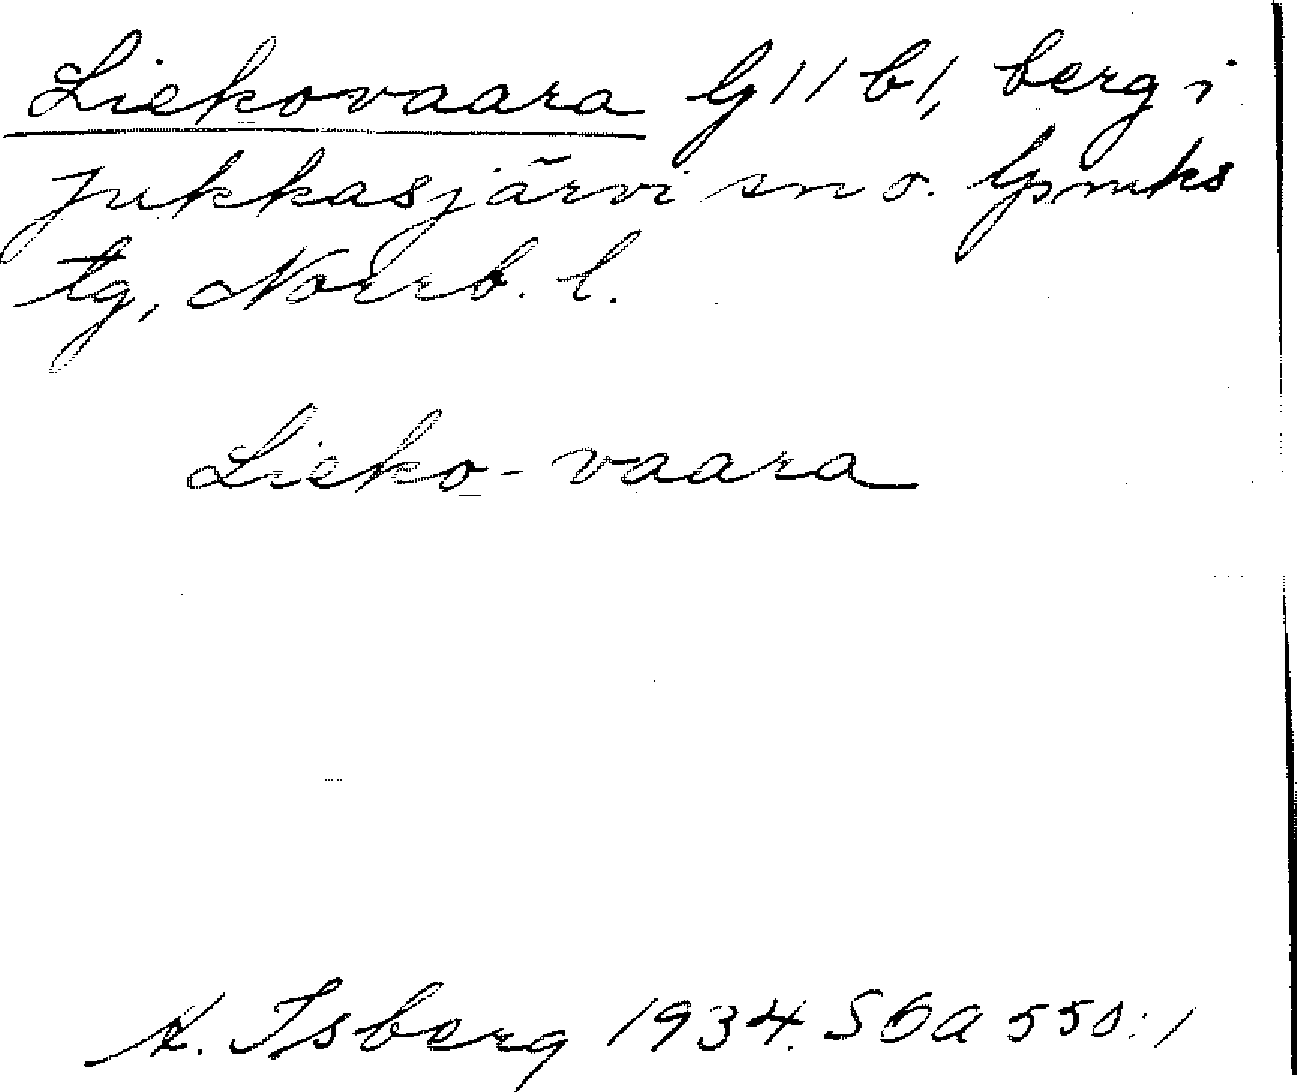 Liekovaara G11 b1, berg i
Jukkasjärvi sn o. lpmks
tg, Norrb. l.
Lieko-vaara
A. Isberg 1934. SOA 550:1